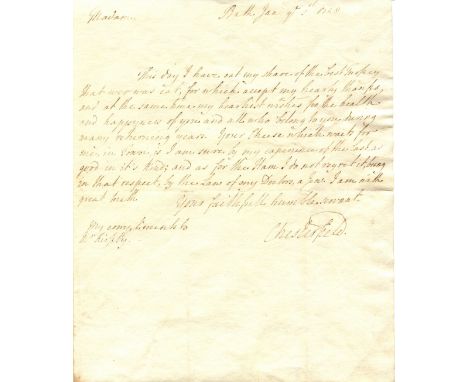 Madam. Bath Jan: ye 1st
This day I have eat my share of the best Turkey
that ever was eat, for which accept my hearty thanks,
and at the same time my heartiest wishes for the health
and happyness of you and all who belong to you, during
many returning years. Your Cheese which waits for
me, in town, is I am sure by my experience of the last as
good in it's kind; and as for the Ham, I do not regret it, being
in that respect, by the Laws of my Doctors, a Jew. I am with
great truth
Your faithfull humble servant.
Chesterfield.
My compliments to